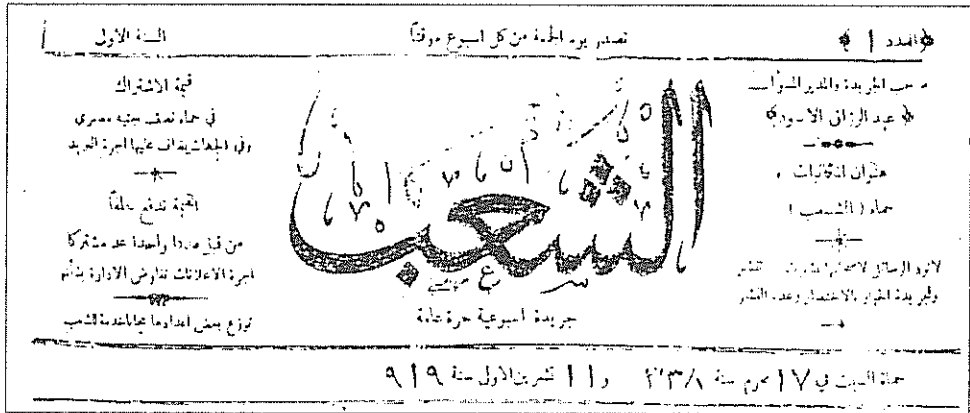 ﴿العدد ١﴾ تصدر يوم الجمعة من كل اسبوع موقتاً السنة الاولى
صاحب الجريدة والمدير المسؤول
﴿عبد الرزاق الاسود﴾
عنوان المكاتبات
حماه (الشعب)
لاترد الرسائل لاصحابها نشرت
وللجريدة الخيار بالاختصار وعدم النشر
الشعب
جريدة اسبوعية حرة عامة
قيمة الاشتراك
في حماه نصف جنيه مصري
وفي الجهات يضاف عليها اجرة البريد
القيمة تدفع سلفاً
من قبل عدداً واحداً عد مشتركا
اجرة الاعلانات تفاوض الادارة بشأنها
توزع بعض اعدادها مجانا خدمة للشعب
حماة السبت في ١٧ محرم سنة ١٣٣٨ و١١ تشرين الاول سنة ٩١٩